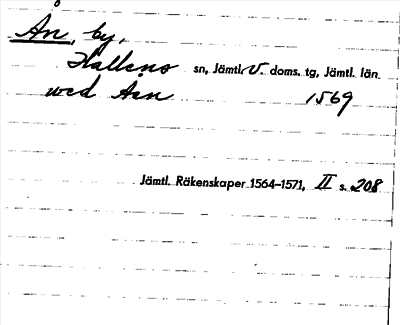 Ån, by,
Hallens sn, Jämtl. V. doms. tg, Jämtl. län.
wed Aen 1569
Jämtl. Räkenskaper 1564–1571, II s. 208